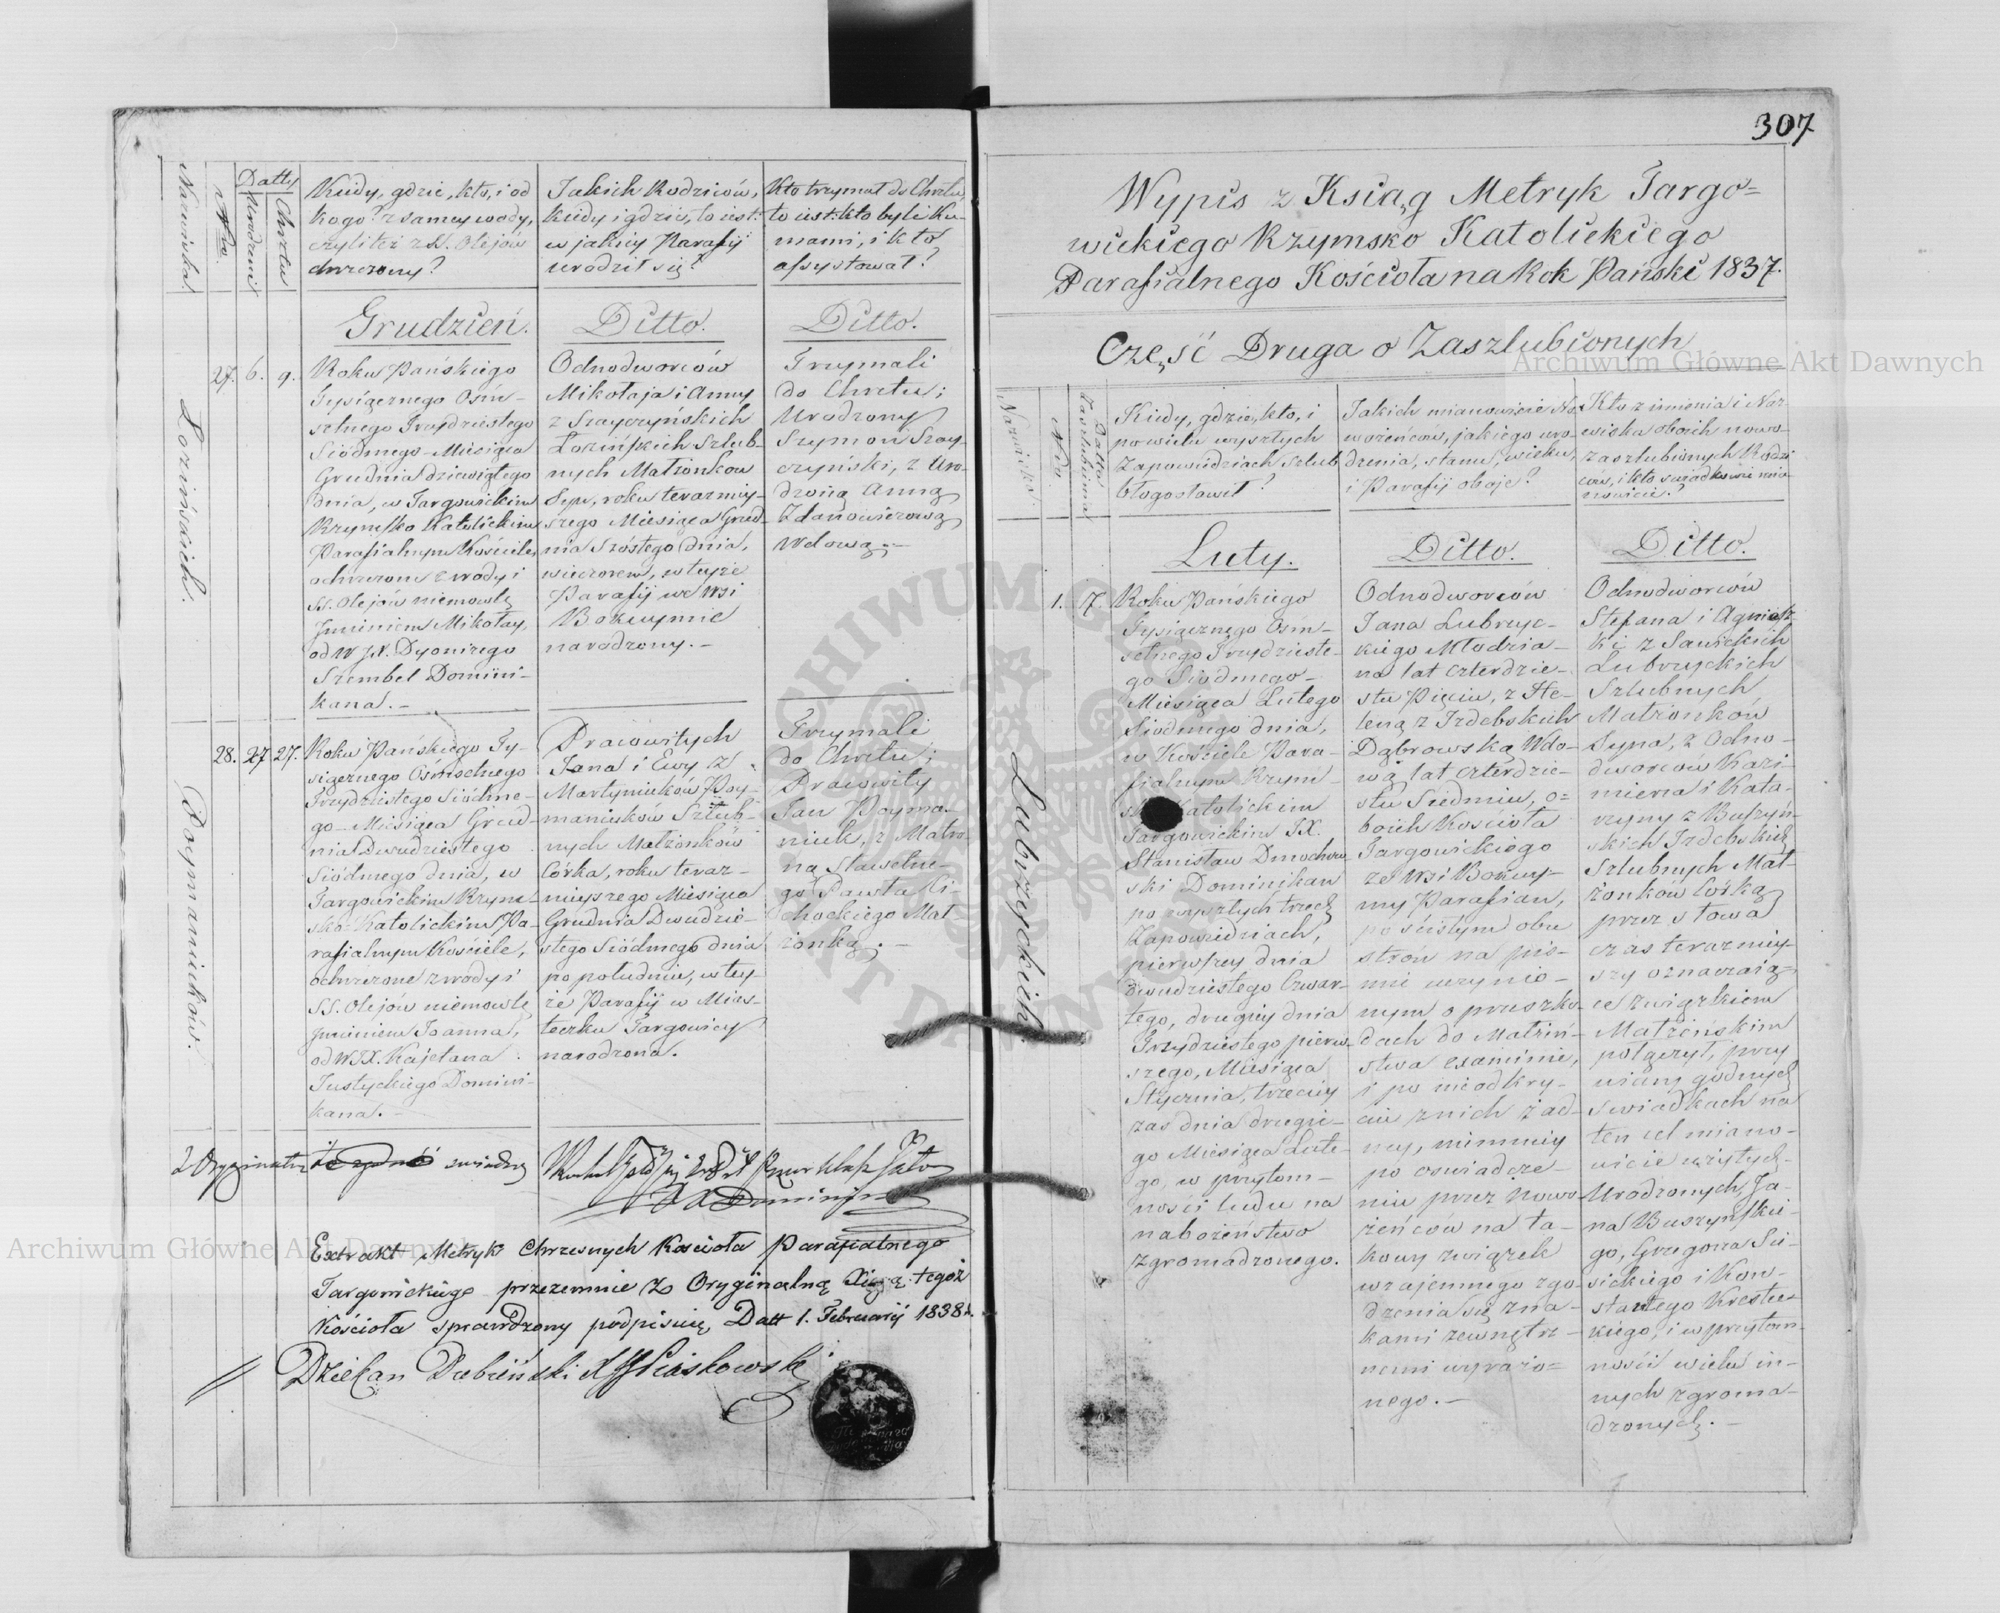 307
Nazwiska
Nro.
Datty
Urodzenia
Chrztu
Kiedy, gdzie, kto, i od
kogo? z samey wody,
czyli też z SS. Olejów
chrzczony?
Jakich Rodziców,
kiedy i gdzie, to iest:
w jakiey Parafij
urodził się?
Kto trzymał do Chrztu,
to iest: kto byli Ku-
mami, i kto
assystował?
Grudzień.
Ditto.
Ditto.
Łozińskich.
27.
6.
9.
Roku Pańskiego
Tysiącznego Ośm-
setnego Trzydziestego
Siódmego Miesiąca
Grudnia dziewiątego
dnia, w Targowickim
Rzymsko Katolickim
Parafialnym Kościele,
ochrzczone z wody i
SS. Olejów niemowlę
Jmieniem Mikołay,
od W JX. Dyonizego
Szembel Domini-
kana. -
Odnodworców
Mikołaja i Anny
z Szayczyńskich
Łozińskich Szlub-
nych Małżonków
Syn, roku teraźniey-
szego Miesiąca Grud-
nia szóstego dnia,
wieczorem, w teyże
Parafij we Wsi
Bokuymie
narodzony. -
Trzymali
do Chrztu;
Urodzony
Szymon Szay-
czyński, z Uro-
dzoną Anną
Zdanowiczową
Wdową. -
Poymaniuków.
28.
27
27.
Roku Pańskiego Ty-
siącznego Ośmsetnego
Trzydziestego Siódme-
go Miesiąca Grud-
nia Dwudziestego
Siódmego dnia, w
Targowickim Rzym-
sko-Katolickim Pa-
rafialnym Kościele,
ochrzczone z wody i
SS. Olejów niemowlę
Jmieniem Joanna,
od W JX. Kajetana
Justyckiego Domini-
kana. -
Pracowitych
Jana i Ewy z
Martyniuków Poy-
maniuków Szlub-
nych Małżonków
Córka, roku teraź-
nieyszego Miesiąca
Grudnia Dwudzie-
stego Siódmego dnia
po południu, w tey-
że Parafij w Mias-
teczku Targowicy
narodzona.
Trzymali
do Chrztu;
Pracowity
Jan Poyma-
niuk, z Matro-
ną Sławetne-
go Pawła Ci-
chockiego Mał-
żonką. -
Extrakt Metryk Chrzesnych Kościoła Parafialnego
Targowickiego przezemnie z Oryginalną Xięgą tegoż
Kościoła sprawdzony podpisuię Datt 1. Februarij 1838 r.
Dziekan Dubieński X Piaskowski
Wypis z Ksiąg Metryk Targo=
wickiego Rzymsko Katolickiego
Parafialnego Kościoła na Rok Pański 1837.
Część Druga o Zaszlubionych
Nazwiska
Nro.
Datta
Zaszlubienia
Kiedy, gdzie, kto, i
po wielu wyszłych
Zapowiedziach szlub
błogosławił?
Jakich mianowicie No-
wożeńców, jakiego uro-
dzenia, stanu, wieku,
i Parafij oboje?
Kto z imienia i Naz-
wiska oboih nowo-
zaszlubionych Rodzi-
ców, i kto świadkowie mia-
nowicie?
Luty.
Ditto.
Ditto.
Lubrzyckich.
1.
7.
Roku Pańskiego
Tysiącznego Ośm-
setnego Trzydzieste-
go Siódmego
Miesiąca Lutego
Siódmego dnia,
w Kościele Para-
fialnym Rzym-
Katolickim
Targowickim JX.
Stanisław Dmochow-
ski Dominikan
po wyszłych trzech
Zapowiedziach,
pierwszey dnia
dwudziestego Czwar-
tego, drugiey dnia
Trzydziestego pierw-
szego, Miesiąca
Stycznia, trzeciey
zaś dnia drugie-
go Miesiąca Lute-
go, w przytom-
ności ludu na
nabożeństwo
zgromadzonego.
Odnodworców
Jana Lubrzyc-
kiego Młodzia-
na lat czterdzie-
stu Pięciu, z He-
leną z Jzdebskich
Dąbrowską Wdo-
wą lat czterdzie-
stu Siedmiu, o=
boich Kościoła
Targowickiego
ze Wsi Bokuy-
my Parafian,
po ścisłym obu
strón na piś-
mie uczynio-
nym o przeszko-
dach do Małżeń-
stwa examinie,
i po nieodkry-
ciu z nich żad-
ney, niemniey
po oświadcze-
niu przez Nowo-
żeńców na ta-
kowy związek
wzajemnego zgo-
dzenia się zna-
kami zewnętrz-
nemi wyrażo=
nego. -
Odnodworców
Stefana i Agniesz-
ki z Sawickich
Lubrzyckich
Szlubnych
Małżonków
Syna, z Odno-
dworców Kazi-
mierza i Kata-
rzyny z Buszyń-
skich Jzdebskich
Szlubnych Mał-
żonków Córką
przez słowa
czas teraźniey-
szy oznaczaią-
ce związkiem
Małżeńskim
połączył, przy
wiary godnych
świadkach na
ten cel miano-
wicie użytych -
Urodzonych, Ja-
na Buszyńskie-
go, Grzegorza Sie-
sickiego i Kon-
stantego Krestec-
kiego, i w przytom-
ności wielu in-
nych zgroma-
dzonych. -
Archiwum Główne Akt Dawnych
Archiwum Główne Akt Dawnych